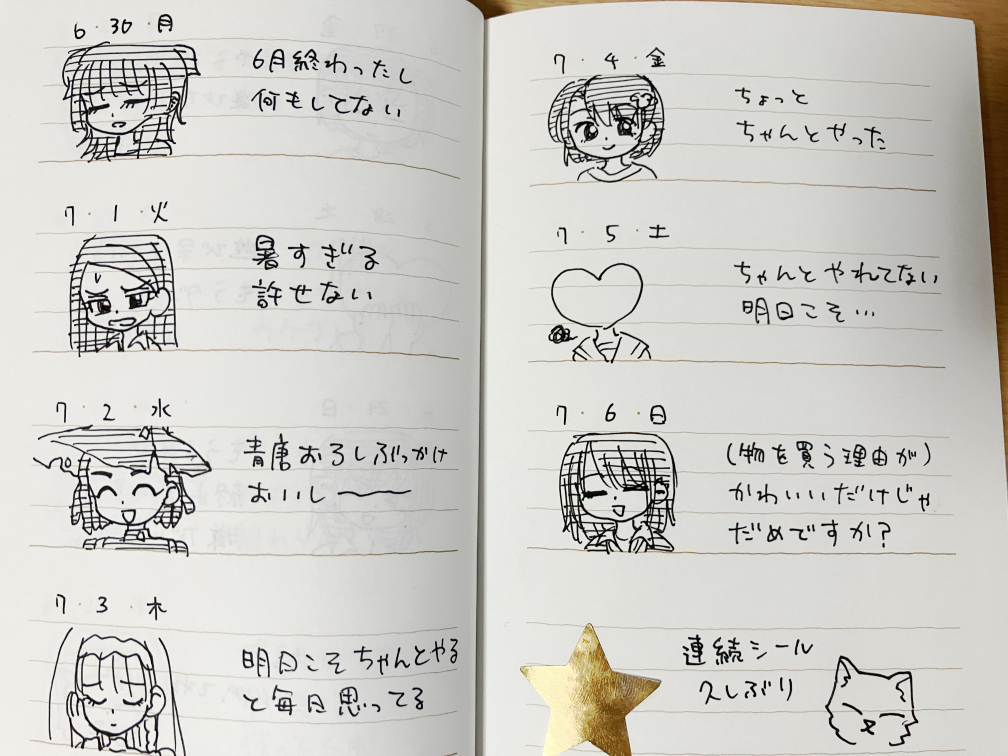 6・30・月
6月終わったし
何もしてない
7・1・火
暑すぎる
許せない
7・2・水
青唐おろしぶっかけ
おいし〜〜
7・3・木
明日こそちゃんとやる
と毎日思ってる
7・4・金
ちょっと
ちゃんとやった
7・5・土
ちゃんとやれてない
明日こそ…
7・6・日
(物を買う理由が)
かわいいだけじゃ
だめですか?
連続シール
久しぶり